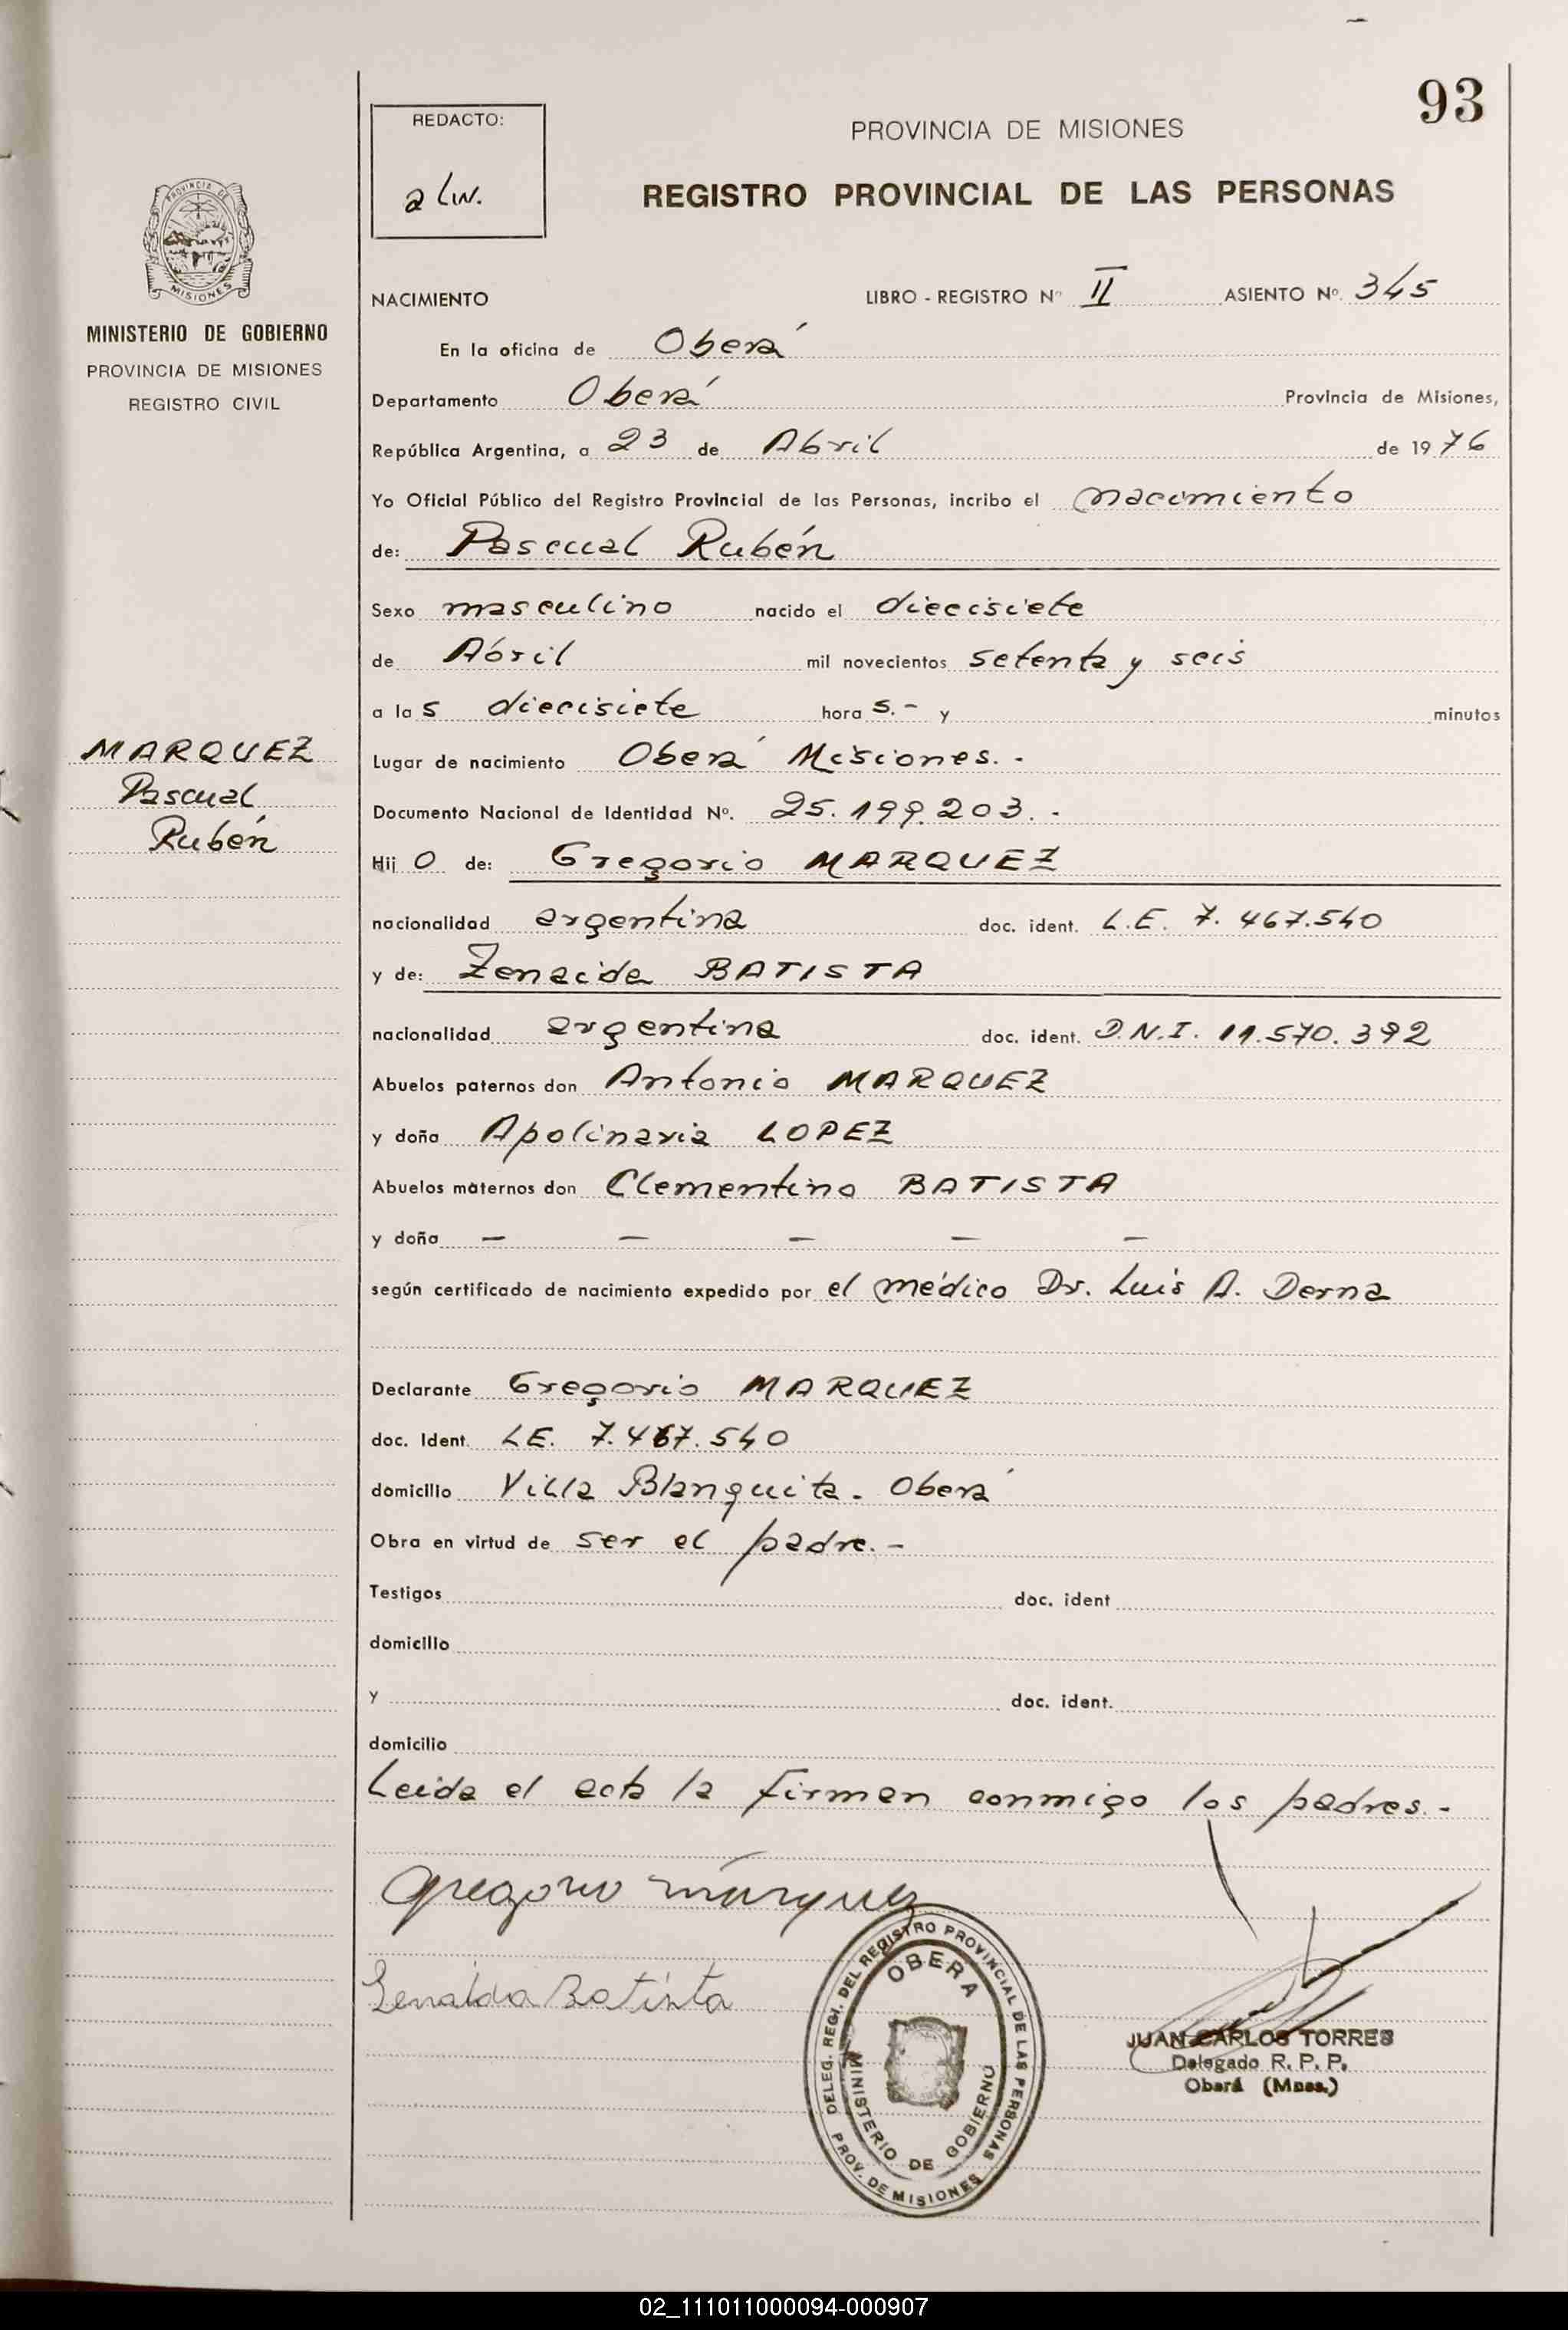 93
REDACTO:
PROVINCIA DE MISIONES
REGISTRO PROVINCIAL DE LAS PERSONAS
PROVINCIA DE
MISIONES
MINISTERIO DE GOBIERNO
PROVINCIA DE MISIONES
REGISTRO CIVIL
NACIMIENTO LIBRO - REGISTRO Nº II ASIENTO Nº. 345
En la oficina de Oberá
Departamento Oberá Provincia de Misiones,
República Argentina, a 23 de Abril de 1976
Yo Oficial Público del Registro Provincial de las Personas, incribo el nacimiento
de: Pascual Rubén
Sexo masculino nacido el diecisiete
de Abril mil novecientos setenta y seis
a las diecisiete hora s.- y minutos
MARQUEZ
Pascual
Rubén
Lugar de nacimiento Oberá Misiones.-
Documento Nacional de Identidad Nº. 25.199.203.-
Hij o de: Gregorio MARQUEZ
nacionalidad argentina doc. ident. L.E. 7.467.540
y de: Zenaida BATISTA
nacionalidad argentina doc. ident. D.N.I. 11.570.392
Abuelos paternos don Antonio MARQUEZ
y doña Apolinaria LOPEZ
Abuelos maternos don Clementino BATISTA
y doña — — — — —
según certificado de nacimiento expedido por el médico Dr. Luis A. Derna
Declarante Gregorio MARQUEZ
doc. Ident. LE. 7.467.540
domicilio Villa Blanquita. Oberá
Obra en virtud de ser el padre.-
Testigos doc. ident
domicilio
y doc. ident.
domicilio
Leida el acta la firman conmigo los padres.-
Gregorio márquez
Zenaida Batista
DELEG. REGI. DEL REGISTRO PROVINCIAL DE LAS PERSONAS
OBERA
MINISTERIO DE GOBIERNO
PROV. DE MISIONES
JUAN CARLOS TORRES
Delegado R. P. P.
Oberá (Mnes.)
02_111011000094-000907